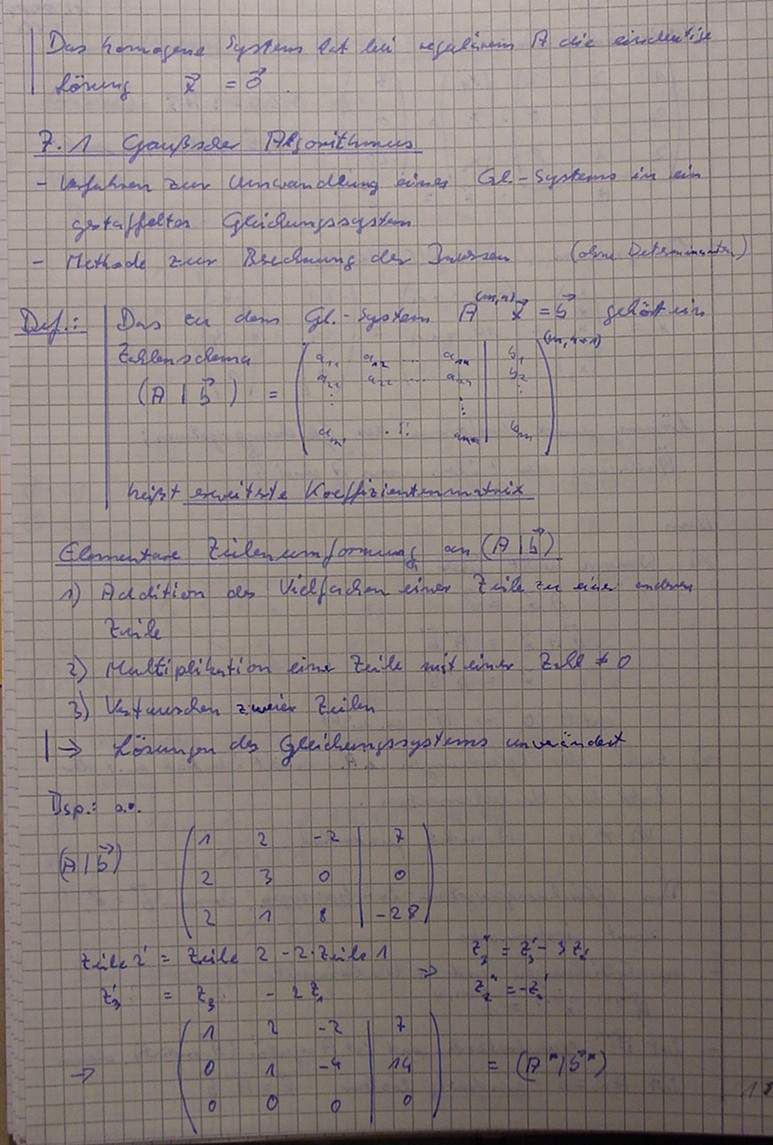 Das homogene System hat bei regulärem A die eindeutige
Lösung x⃗ = 0⃗.
7.1 Gaußscher Algorithmus
- Verfahren zur Umwandlung eines Gl.-Systems in ein
gestaffeltes Gleichungssystem
- Methode zur Berechnung der Inversen (ohne Determinanten)
Def.: Das zu dem Gl.-System A^(m,n) x⃗ = b⃗ gehört ein
Zahlenschema
(A | b⃗) = ( a₁₁ a₁₂ ... a₁ₙ | b₁ )^(m,n+1)
a₂₁ a₂₂ ... a₂ₙ | b₂
⋮ ⋮ ⋮
aₘ₁ ... aₘₙ | bₘ
heißt erweiterte Koeffizientenmatrix
Elementare Zeilenumformung an (A | b⃗)
1) Addition des Vielfachen einer Zeile zu einer anderen
Zeile
2) Multiplikation eine Zeile mit einer Zahl ≠ 0
3) Vertauschen zweier Zeilen
→ Lösungen des Gleichungssystems unverändert
Bsp.: s.o.
(A | b⃗) ( 1 2 -2 | 7 )
2 3 0 | 0
2 1 8 | -28
Zeile 2' = Zeile 2 - 2·Zeile 1
z₃' = z₃ - 2z₁
⇒
z₂'' = -z₂'
→ ( 1 2 -2 | 7 )
0 1 -4 | 14
0 0 0 | 0
= (A* | b⃗*)